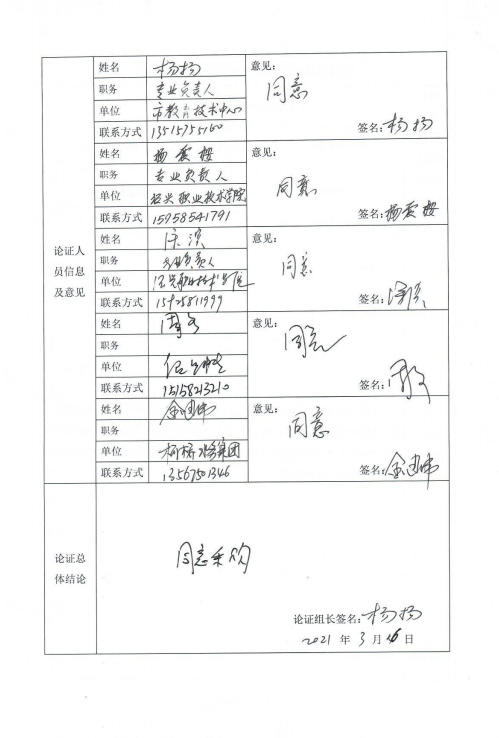 论证人
员信息
及意见
姓名 杨扬
职务 专业负责人
单位 市教育技术中心
联系方式 13515755160
意见：
同意
签名：杨扬
姓名 杨云樱
职务 专业负责人
单位 绍兴职业技术学院
联系方式 15958541791
意见：
同意
签名：杨云樱
姓名
职务 专业负责人
单位 绍兴职业技术学院
联系方式 15925811999
意见：
同意
签名：
姓名
职务
单位
联系方式 15158213210
意见：
同意
签名：
姓名 金建伟
职务
单位 柯桥水务集团
联系方式 13567501346
意见：
同意
签名：金建伟
论证总
体结论
同意采购
论证组长签名：杨扬
2021 年 3 月 16 日